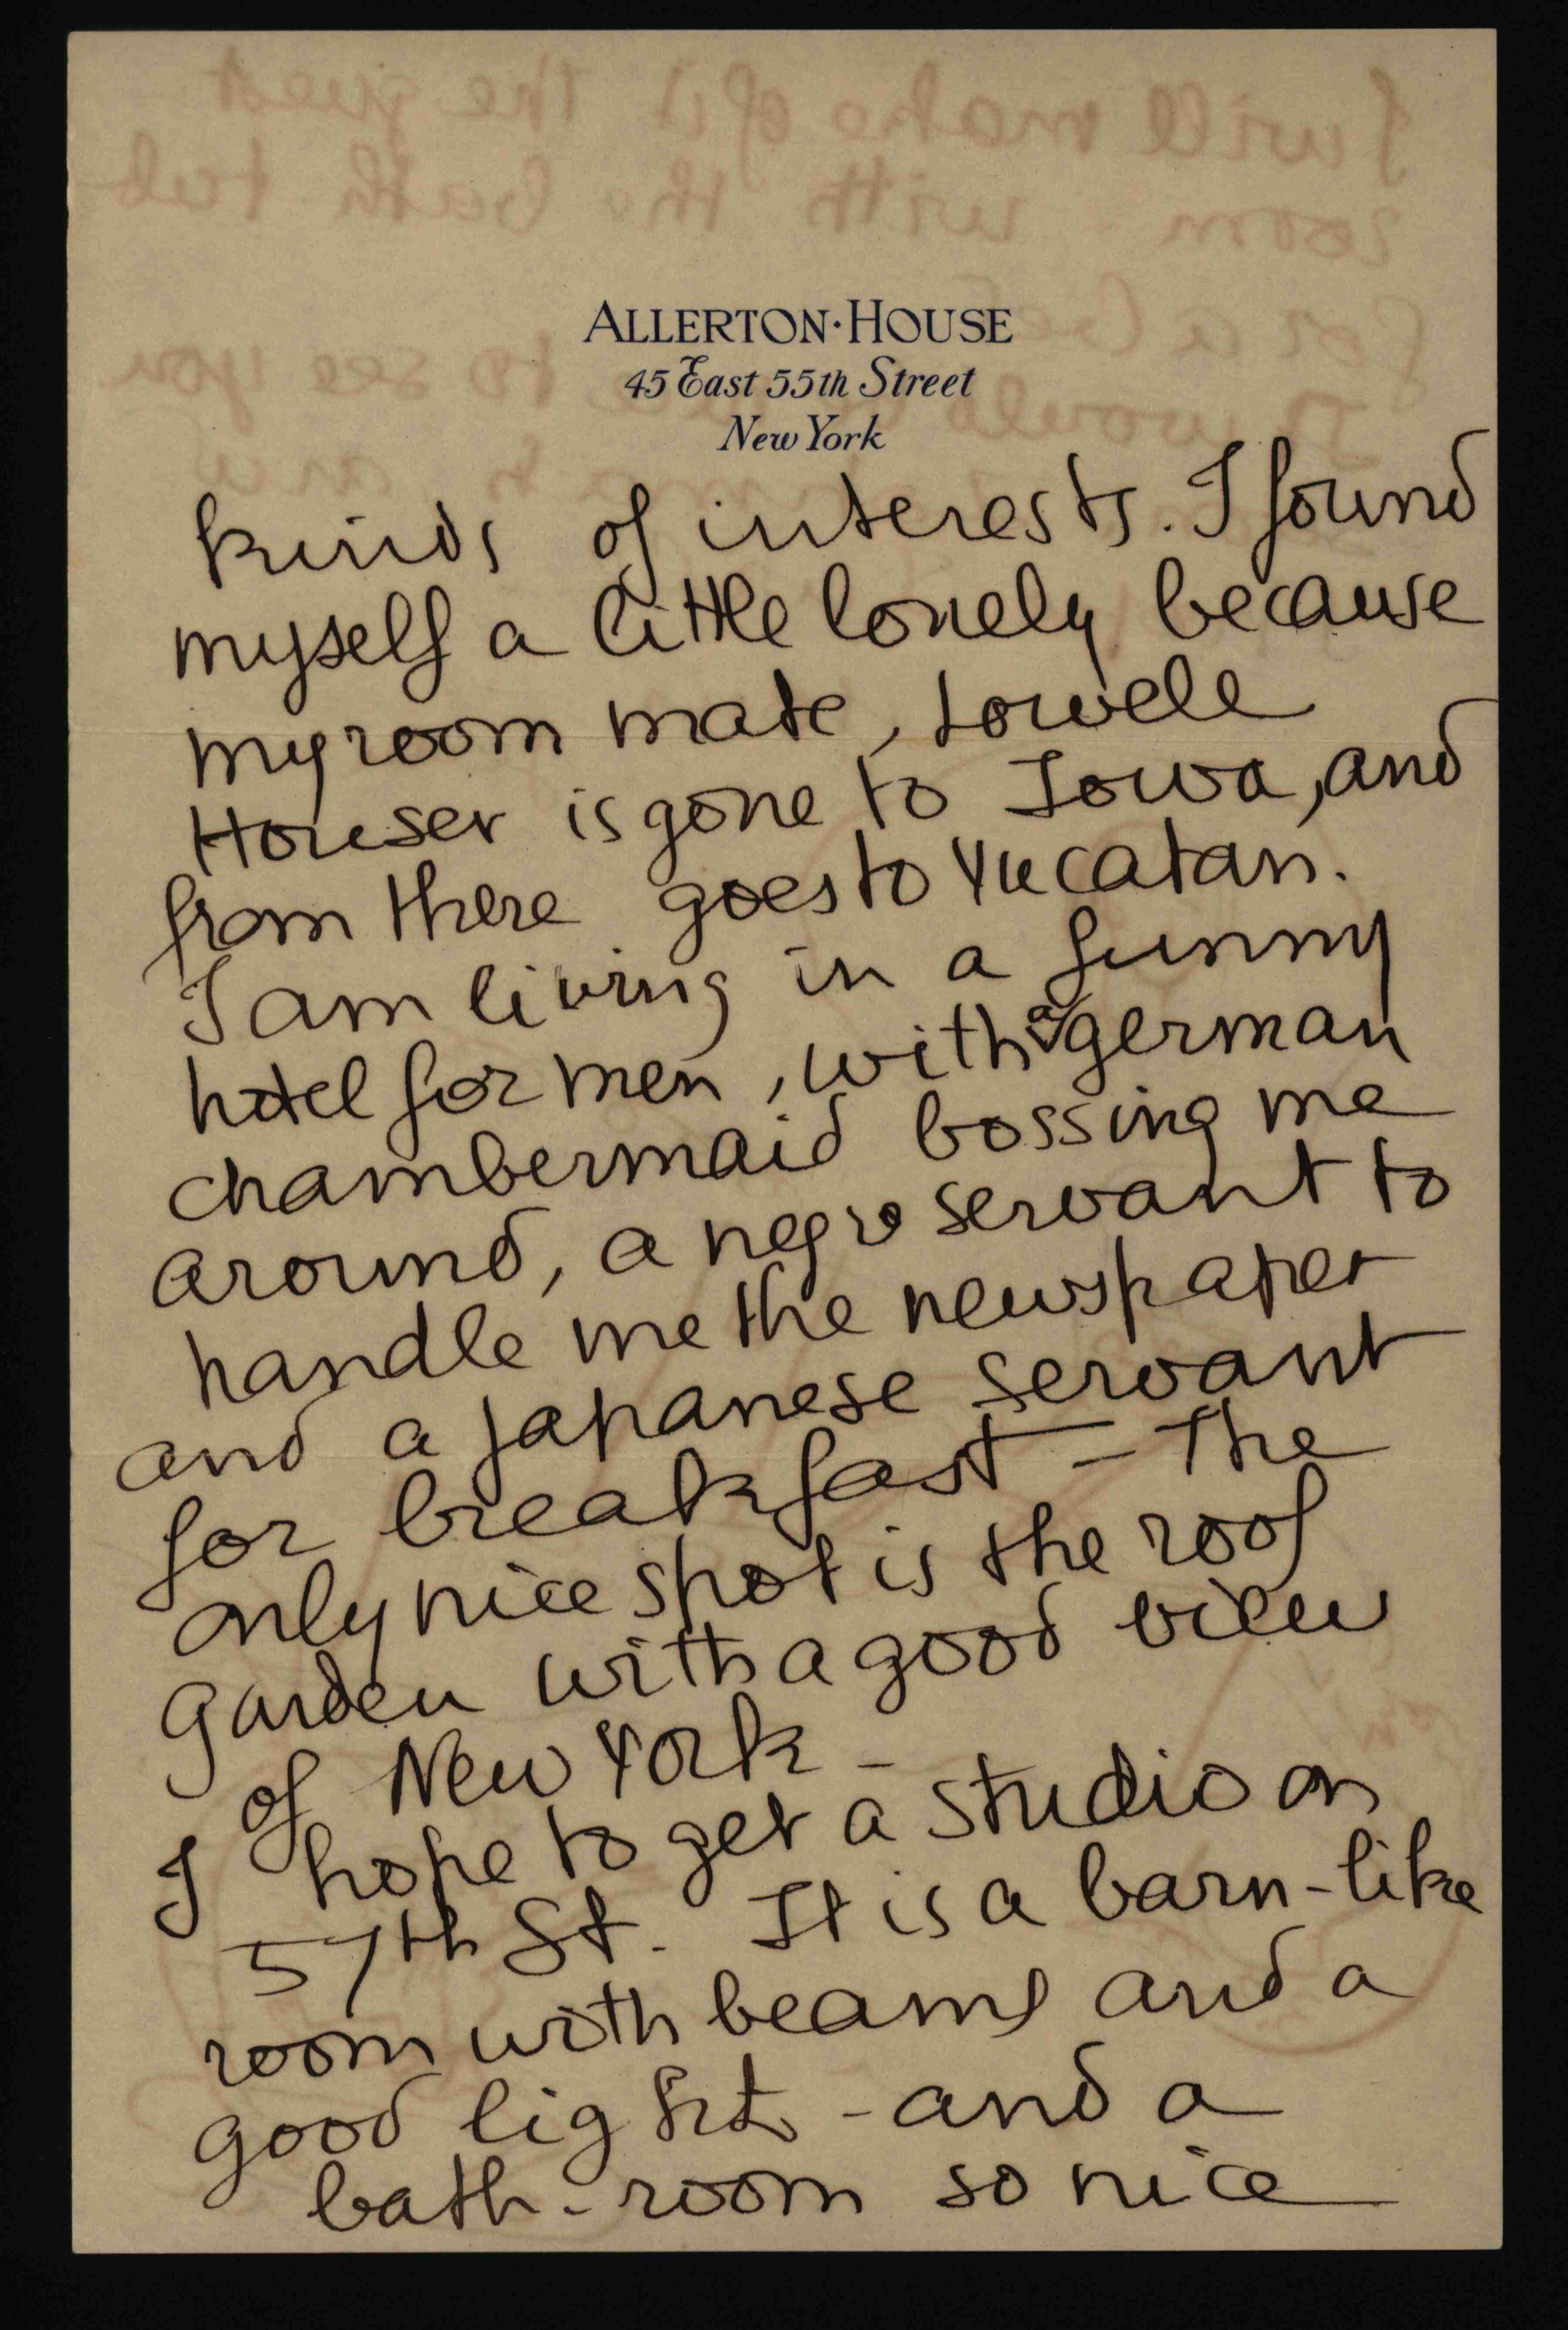 ALLERTON·HOUSE
45 East 55th Street
New York
kinds of interests. I found
myself a little lonely because
my room mate, Lowell
Houser is gone to Iowa, and
from there goes to Yucatan.
I am living in a funny
hotel for men, with a german
chambermaid bossing me
around, a negro servant to
handle me the newspaper
and a japanese servant
for breakfast - The
only nice spot is the roof
garden with a good view
of New York -
I hope to get a studio on
57th St. It is a barn-like
room with beams and a
good light - and a
bath-room so nice